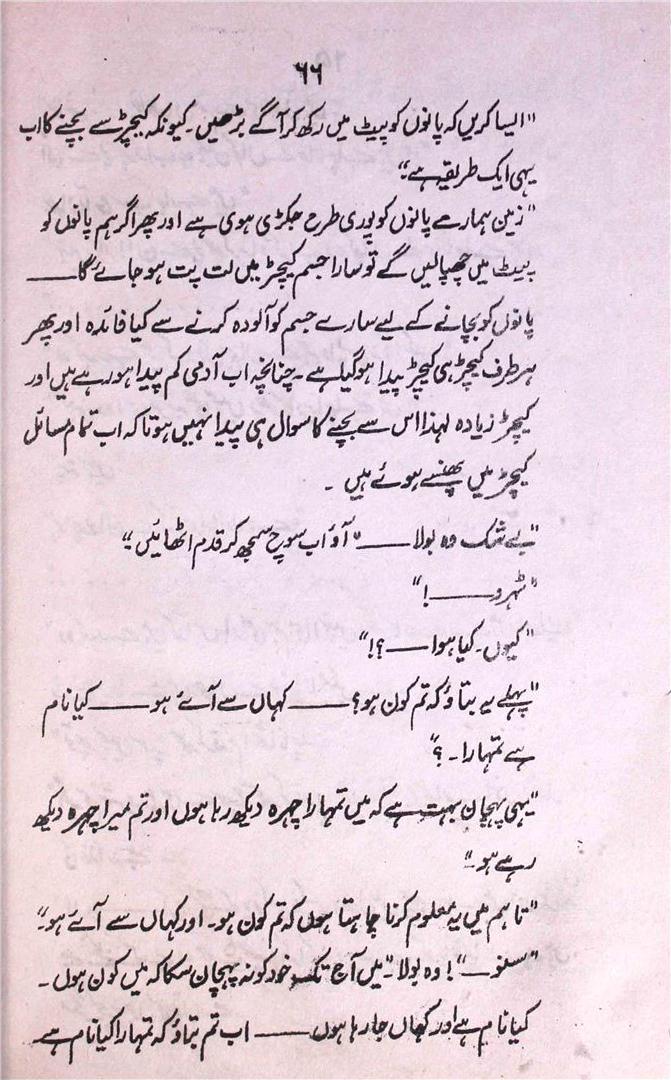 ۶۶
"ایسا کریں کہ پانوں کو پیٹ میں رکھ کر آگے بڑھیں۔ کیونکہ کیچڑ سے بچنے کا اب
یہی ایک طریقہ ہے"
"زمین ہمارے پانوں کو پوری طرح جکڑی ہوی ہے اور پھر اگر ہم پانوں کو
پیٹ میں چھپالیں گے تو سارا جسم کیچڑ میں لت پت ہو جائے گا ——
پانوں کو بچانے کے لیے سارے جسم کو آلودہ کرنے سے کیا فائدہ اور پھر
ہر طرف کیچڑ ہی کیچڑ پیدا ہو گیا ہے۔ چنانچہ اب آدمی کم پیدا ہو رہے ہیں اور
کیچڑ زیادہ لہذا اس سے بچنے کا سوال ہی پیدا نہیں ہوتا کہ اب تمام مسائل
کیچڑ میں پھنسے ہوئے ہیں ۔
"بے شک وہ بولا —— "آؤ اب سوچ سمجھ کر قدم اٹھائیں"
"ٹہرو ——!"
"کیوں۔ کیا ہوا ——؟!"
"پہلے یہ بتاؤ کہ تم کون ہو؟ —— کہاں سے آئے ہو —— کیا نام
ہے تمہارا۔؟"
"یہی پہچان بہت ہے کہ میں تمہارا چہرہ دیکھ رہا ہوں اور تم میرا چہرہ دیکھ
رہے ہو۔"
"تاہم میں یہ معلوم کرنا چاہتا ہوں کہ تم کون ہو۔ اور کہاں سے آئے ہو"
"سنو —"! وہ بولا "میں آج تک خود کو نہ پہچان سکا کہ میں کون ہوں۔
کیا نام ہے اور کہاں جا رہا ہوں —— اب تم بتاؤ کہ تمہارا کیا نام ہے